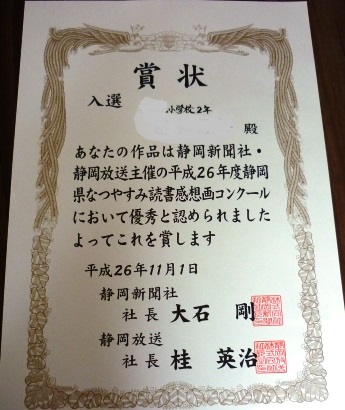 賞状
入選
小学校2年
殿
あなたの作品は静岡新聞社・
静岡放送主催の平成26年度静岡
県なつやすみ読書感想画コンクール
において優秀と認められました
よってこれを賞します
平成26年11月1日
静岡新聞社
社長 大石 剛
静岡放送
社長 桂 英治